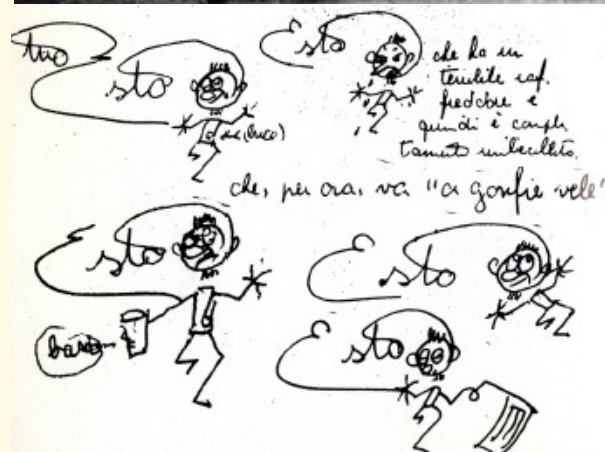 tuo
Esto
Esto
che ha un
terribile raf
freddore e
quindi è comple
tamente imbecillito.
(buco)
che, per ora, va "a gonfie vele"
Esto
Esto
Esto